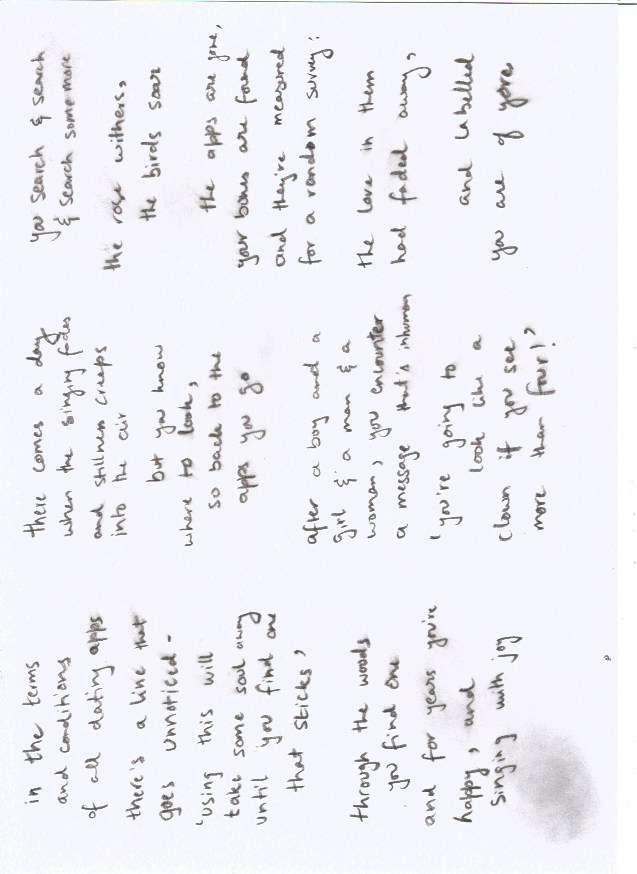 in the terms
and conditions
of all dating apps
there's a line that
goes unnoticed -
'using this will
take some soul away
until you find one
that sticks'
through the woods
you find one
and for years you're
happy, and
singing with joy
there comes a day
when the singing fades
and stillness creeps
into the air
but you know
where to look,
so back to the
apps you go
after a boy and a
girl & a man & a
woman, you encounter
a message that's inhuman
'you're going to
look like a
clown if you see
more than four!'
you search & search
& search some more
the rose withers,
the birds soar
the apps are gone,
your bones are found
and they're measured
for a random survey:
the love in them
had faded away,
and labelled
you are of yore